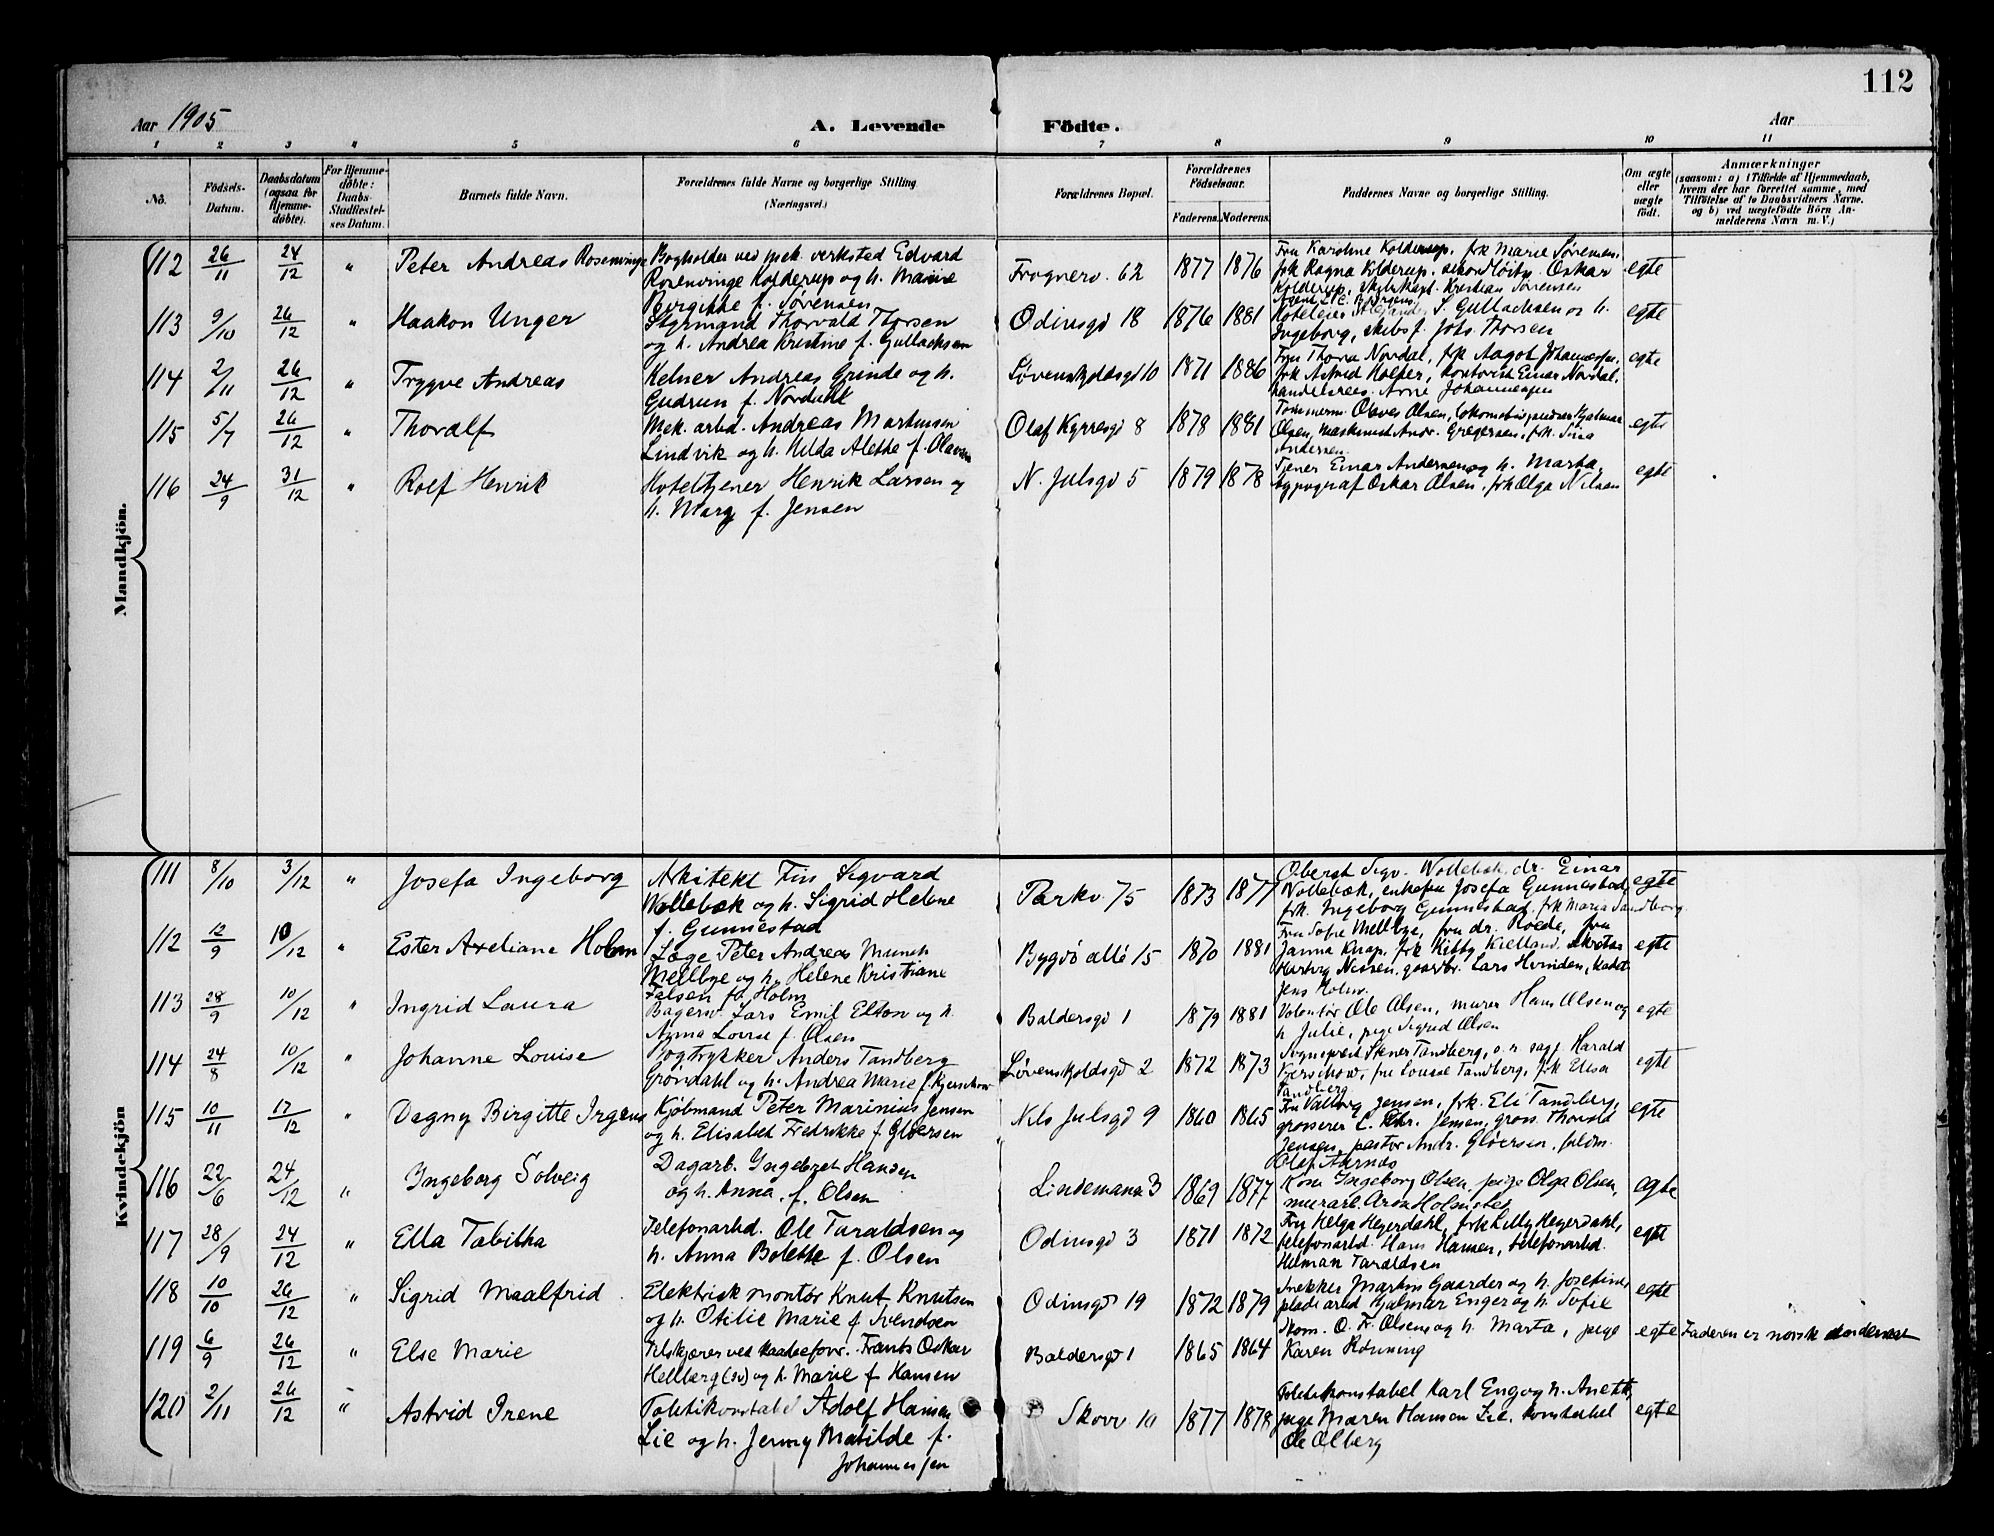 112
Aar 1905
A. Levende Födte.
Aar
1 2 3 4 5 6 7 8 9 10 11
No.
Födsels-
Datum.
Daabsdatum
(ogsaa for
Hjemme-
döbte).
For Hjemme-
döbte:
Daabs-
Stadfæstel-
ses Datum.
Barnets fulde Navn.
Forældrenes fulde Navne og borgerlige Stilling
(Næringsvei.)
Forældrenes Bopæl.
Forældrenes
Födselsaar.
Faderens. Moderens.
Faddernes Navne og borgerlige Stilling.
Om ægte
eller
uægte
födt.
Anmærkninger
(saasom: a) i Tilfælde af Hjemmedaab,
hvem der har forrettet samme, med
Tilföielse af to Daabsvidners Navne.
og b) ved uægtefödte Börn An-
melderens Navn m. V.)
Mandkjön.
112 26/11 24/12 " Peter Andreas Rosenvinge
Bogholder ved mek. verksted Edvard
Rosenvinge Kolderup og h. Marie
Birgitte f. Sørensen
Frognerv. 62 1877 1876
Fru Karoline Kolderup, frk Marie Sørensen,
frk Ragna Kolderup, sekondløitn. Oskar
Kolderup, Skibskapt. Kristian Sørensen
egte
113 9/10 26/12 " Haakon Unger
Styrmand Thorvald Thorsen
og h. Andrea Kristine f. Gullachsen
Odinsgd 18 1876 1881
Hoteleier S. Gullachsen og h.
Ingeborg, skibsf. Johs. Thorsen
egte
114 2/11 26/12 " Trygve Andreas
Kelner Andreas Grinde og h.
Gudrun f. Nordahl
Løvenskjoldsgd 10 1871 1886
Fru Thora Nordal, frk Aagot Johannesen,
frk Astrid Holter, kontorist Einar Nordal,
handelsreis. Arne Johannesen
egte
115 5/7 26/12 " Thoralf
Mek. arbd. Andreas Martinsen
Lindvik og h. Hilda Alette f. Olavesen
Olaf Kyrresgd 8 1878 1881
Tømmerm. Olaves Olsen, lokomotivpudser Hjalmar
Olsen, maskinist Andr. Gregersen, frk. Tina
Andersen
egte
116 24/9 31/12 " Rolf Henrik
Hoteltjener Henrik Larsen og
h. Marg f. Jensen
N. Julsgd 5 1879 1878
Tjener Einar Andersen og h. Marta,
typograf Oskar Olsen, frk Olga Nilsen
egte
Kvindekjön
111 8/10 3/12 " Josefa Ingeborg
Arkitekt Fin Sigvard
Wollebæk og h. Sigrid Helene
f. Gunnestad
Parkv 75 1873 1877
Oberst Sigv. Wollebæk, dr. Einar
Wollebæk, enkefru Josefa Gunnestad,
frk. Ingeborg Gunnestad, frk Maria Sandborg
egte
112 12/9 10/12 " Ester Axeliane Holm
Læge Peter Andreas Munch
Mellbye og h. Helene Kristiane
Falsen f. Holm
Bygdø allé 15 1870 1881
Fru Sofie Mellbye, fru dr. Roede, fru
Janna Knap, frk Kitty Kielland, sekretær
Nissen, gaardbr. Lars Hvinden, kadet
Jens Holm
egte
113 28/9 10/12 " Ingrid Laura
Bagersv. Lars Emil Elton og h.
Anna Lovise f. Olsen
Baldersgd 1 1879 1881
Volontør Ole Olsen, murer Hans Olsen og
h Julie, pige Sigrid Olsen
egte
114 24/8 10/12 " Johanne Louise
Bogtrykker Anders Tandberg
Grøndahl og h. Andrea Marie f. Kjerschow
Løvenskjoldsgd 2 1872 1873
Sogneprest Stener Tandberg, o. r. sagf. Harald
Kjerschow, fru Louise Tandberg, frk Elisa
Tandberg
egte
115 10/11 17/12 " Dagny Birgitte Irgens
Kjøbmand Peter Marinius Jensen
og h. Elisabet Fredrikke f. Gløersen
Nils Julsgd 9 1860 1865
Fru Valborg Jensen, frk. Eli Tandberg,
grosserer C. Chr. Jensen, gross. Thorvald
Jensen, pastor Andr. Gløersen, fuldm.
Olaf Aarnæs
egte
116 22/6 24/12 " Ingeborg Solveig
Dagarb. Ingebret Hansen
og h. Anna, f. Olsen
Lindemans 3 1869 1877
Kone Ingeborg Olsen, pige Olga Olsen,
murarb. Aron Holmsted
egte
117 28/9 24/12 " Ella Tabitha
Telefonarbd. Ole Taraldsen og
h. Anna Bolette f. Olsen
Odinsgd 3 1871 1872
Fru Helga Heyerdahl, frk Lilly Heyerdahl,
telefonarbd. Hans Hansen, telefonarbd.
Hilman Taraldsen
egte
118 10/10 26/12 " Sigrid Maalfrid
Elektrisk montør Knut Knutsen
og h. Otilie Marie f Svendsen
Odinsgd 19 1872 1879
Snekker Martin Gaarder og h. Josefine,
pladsarbd Hjalmar Enger og h. Sofie
egte
119 6/9 26/12 " Else Marie
Tilskjærer ved skaofeforr. Frants Oskar
Hellberg (sv) og h. Marie f Hansen
Baldersgd 1 1865 1864
Skom. O. Fr. Olsen og h. Marta, pige
Karen Rønning
egte Faderen er norsk undersaat
120 2/11 26/12 " Astrid Irene
Politikonstabel Adolf Hansen
Lie og h. Jenny Matilde f.
Johannessen
Skovv 10 1877 1878
Politikonstabel Karl Eng og h. Anette,
pige Maren Hansen Lie, konstabel
Ole Olberg
egte